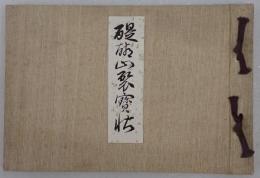 醍醐山聚寳帖